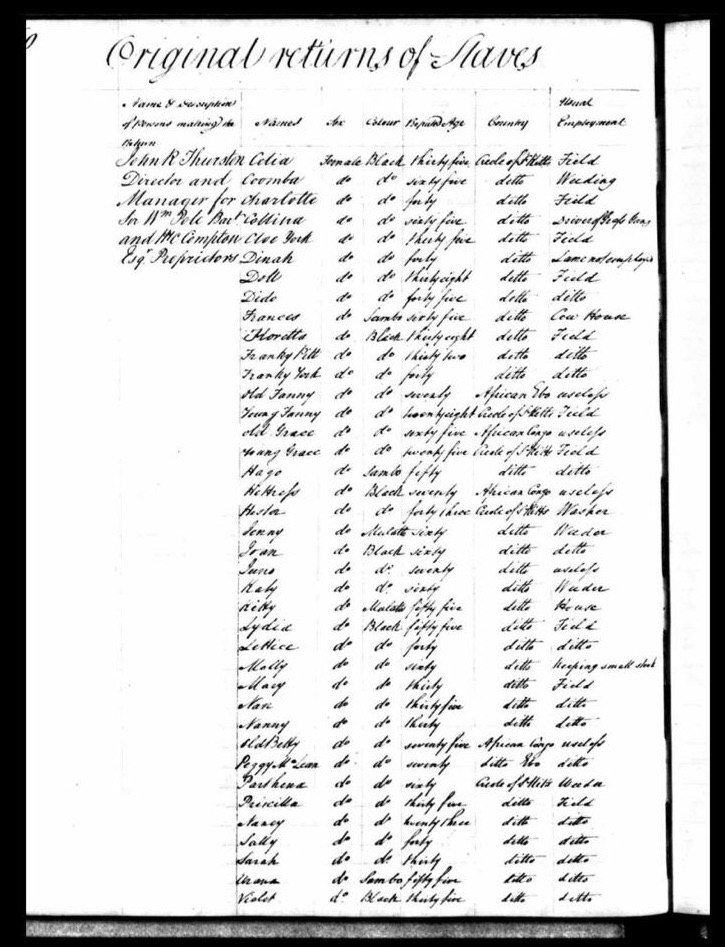 Original returns of Slaves
Name & description of Persons making the Return Names Sex Colour Reputed Age Country Usual Employment
John R Thurston Celia Female Black thirty five Creole of St Kitts Field
Director and Coomba do do sixty five ditto Weeding
Manager for Charlotte do do forty ditto Field
Sir Wm Pole Bart do do sixty five ditto Driver of Grass Gang
and Compton Cloe York do do thirty five ditto Field
Esqr Proprietors Dinah do do forty ditto Lame not employed
Doll do do thirty eight ditto Field
Dido do do forty five ditto ditto
Frances do Sambo sixty five ditto Cow House
Floretta do Black thirty eight ditto Field
Franky Pitt do do thirty two ditto ditto
Franky York do do forty ditto ditto
Old Fanny do do seventy African Ebo useless
Young Fanny do do twenty eight Creole of St Kitts Field
Old Grace do do sixty five African Congo useless
Young Grace do do twenty five Creole of St Kitts Field
Hago do Sambo fifty ditto ditto
do Black seventy African Congo useless
Hester do do forty three Creole of St Kitts Washer
Jenny do Mulatto sixty ditto Weeder
Joan do Black sixty ditto ditto
Juno do do seventy ditto useless
Katy do do sixty ditto Weeder
Kitty do Mulatto fifty five ditto House
Lydia do Black fifty five ditto Field
Lettice do do forty ditto ditto
Molly do do sixty ditto Keeping small stock
Macy do do thirty ditto Field
Nan do do thirty five ditto ditto
Nanny do do thirty ditto ditto
Old Betty do do seventy five African Congo useless
Peggy McLean do do seventy ditto Ebo ditto
Parthena do do sixty Creole of St Kitts Weeder
Priscilla do do thirty five ditto Field
Nancy do do twenty three ditto ditto
Sally do do forty ditto ditto
Sarah do do thirty ditto ditto
Urana do Sambo fifty five ditto ditto
Violet do Black thirty five ditto ditto